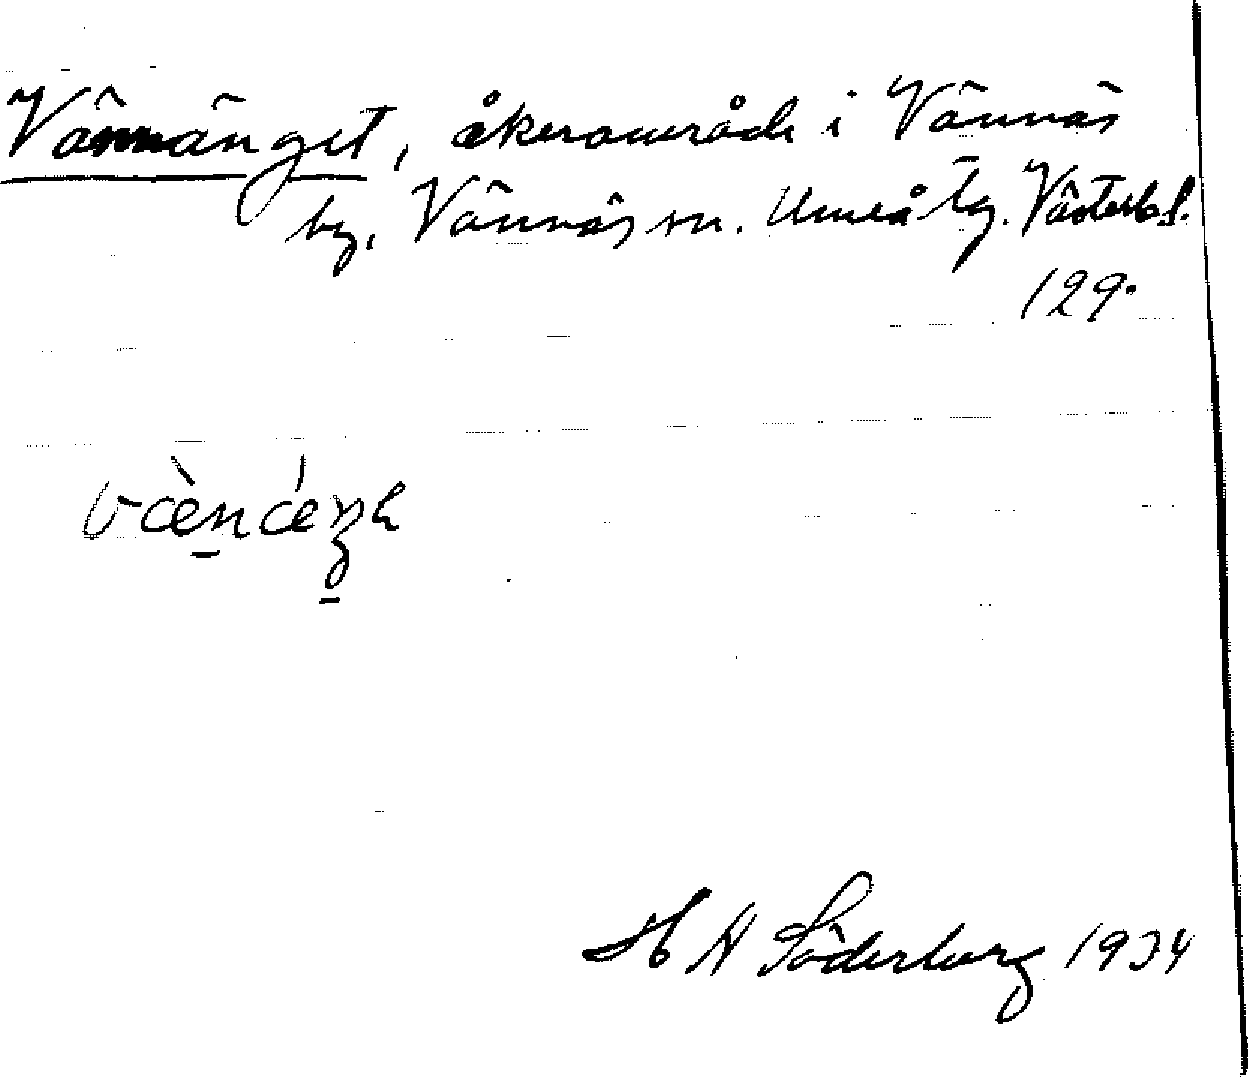 Vännänget, åkerområde i Vännäs
by, Vännäs sn. Umeå tg. Västerb. l.
129.
vænæŋe
H A Söderberg 1934